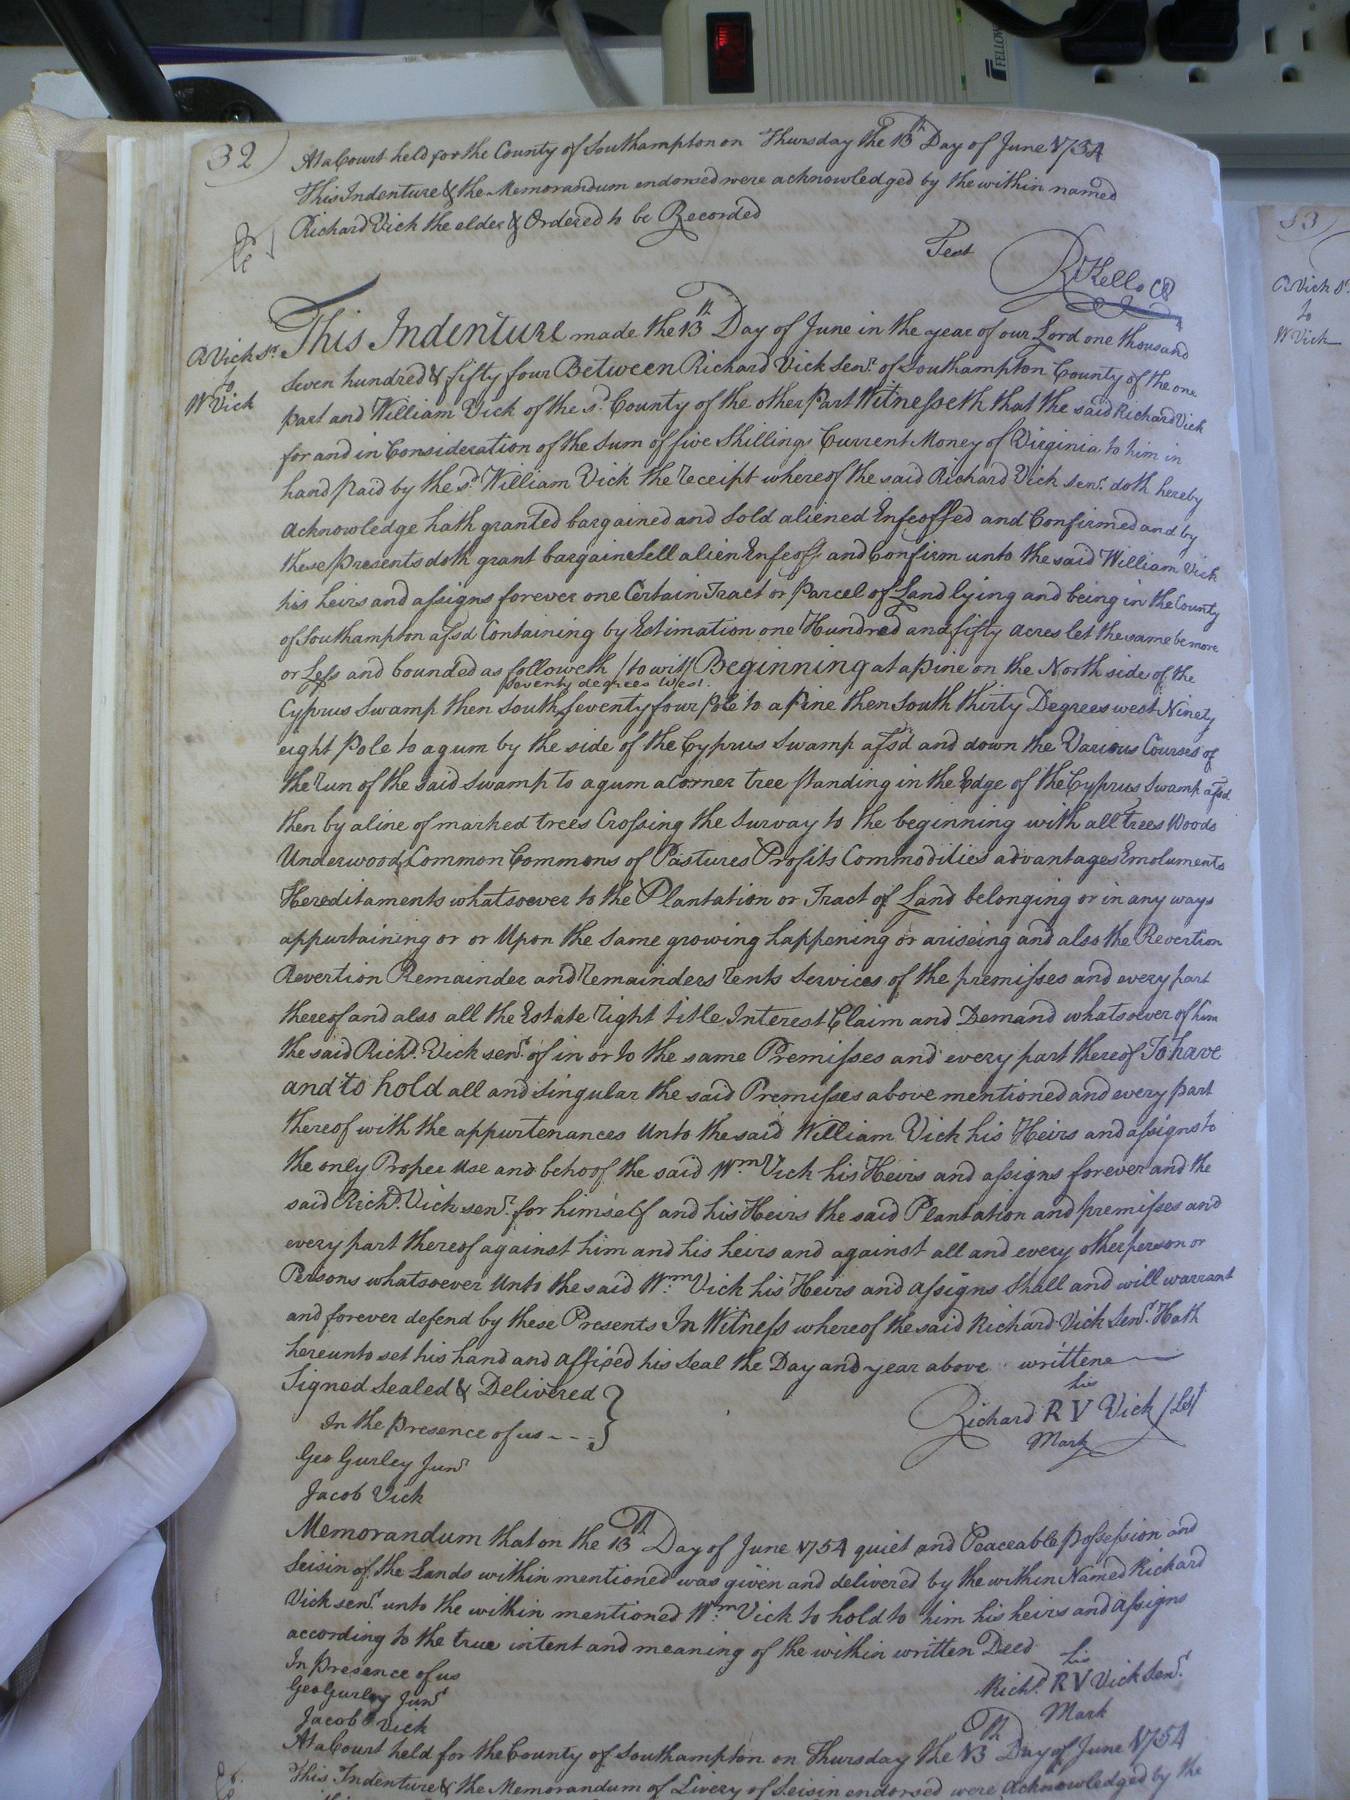 32)
At a Court held for the County of Southampton on Thursday the 13th Day of June 1754
This Indenture & the Memorandum endorsed were acknowledged by the within named
Richard Vick the elder & Ordered to be Recorded
Test
R Kello C
FELLOW
33)
R Vick Sr.
to
W Vick
R Vick Sr.
to
W Vick
This Indenture made the 13th Day of June in the year of our Lord one thousand
Seven hundred & fifty four Between Richard Vick Senr. of Southampton County of the one
part and William Vick of the sd. County of the other Part Witnesseth that the said Richard Vick
for and in Consideration of the Sum of five Shillings Current Money of Virginia to him in
hand paid by the sd. William Vick the receipt whereof the said Richard Vick senr. doth hereby
Acknowledge hath granted bargained and Sold aliened Enfeoffed and Confirmed and by
these presents doth grant bargain Sell alien Enfeoff and Confirm unto the said William Vick
his heirs and assigns forever one Certain Tract or parcel of Land lying and being in the County
of Southampton afsd Containing by Estimation one Hundred and fifty acres let the same be more
or Less and bounded as followeth /to wit/ Beginning at a pine on the North side of the
seventy degrees West.
Cyprus Swamp then South seventy four pole to a Pine then South thirty Degrees west Ninety
eight Pole to a gum by the side of the Cyprus Swamp afsd and down the Various Courses of
the run of the said Swamp to a gum a Corner tree standing in the Edge of the Cyprus Swamp afsd
then by a line of marked trees Crossing the Survay to the beginning with all trees Woods
Underwoods Common Commons of Pastures Profits Commodities advantages Emoluments
Hereditaments whatsoever to the Plantation or Tract of Land belonging or in any ways
appurtaining or or Upon the same growing happening or ariseing and also the Revertion
Revertion Remainder and remainders rents Services of the premisses and every part
thereof and also all the Estate right title Interest Claim and Demand whatsoever of him
the said Richd. Vick senr. of in or to the same Premisses and every part thereof To have
and to hold all and singular the said Premisses above mentioned and every part
thereof with the appurtenances Unto the said William Vick his Heirs and assigns to
the only Proper use and behoof the said Wm. Vick his Heirs and assigns forever and the
said Richd. Vick senr. for himself and his Heirs the said Plantation and premisses and
every part thereof against him and his heirs and against all and every other person or
Persons whatsoever Unto the said Wm. Vick his Heirs and Assigns Shall and will warrant
and forever defend by these Presents In Witness whereof the said Richard Vick Senr. Hath
hereunto set his hand and affixed his Seal the Day and year above writtene
Signed Sealed & Delivered }
In the Presence of us - - -
his
Richard R V Vick /LS/
Mark
Geo Gurley Junr
Jacob Vick
Memorandum that on the 13th Day of June 1754 quiet and Peaceable possession and
Seisin of the Lands within mentioned was given and delivered by the within Named Richard
Vick senr. unto the within mentioned Wm. Vick to hold to him his heirs and assigns
according to the true intent and meaning of the within written Deed
In presence of us
Geo Gurley Junr
Jacob Vick
his
Richd. R V Vick Senr.
Mark
At a Court held for the County of Southampton on Thursday the 13th Day of June 1754
This Indenture & the Memorandum of Livery of Seisin endorsed were Acknowledged by the